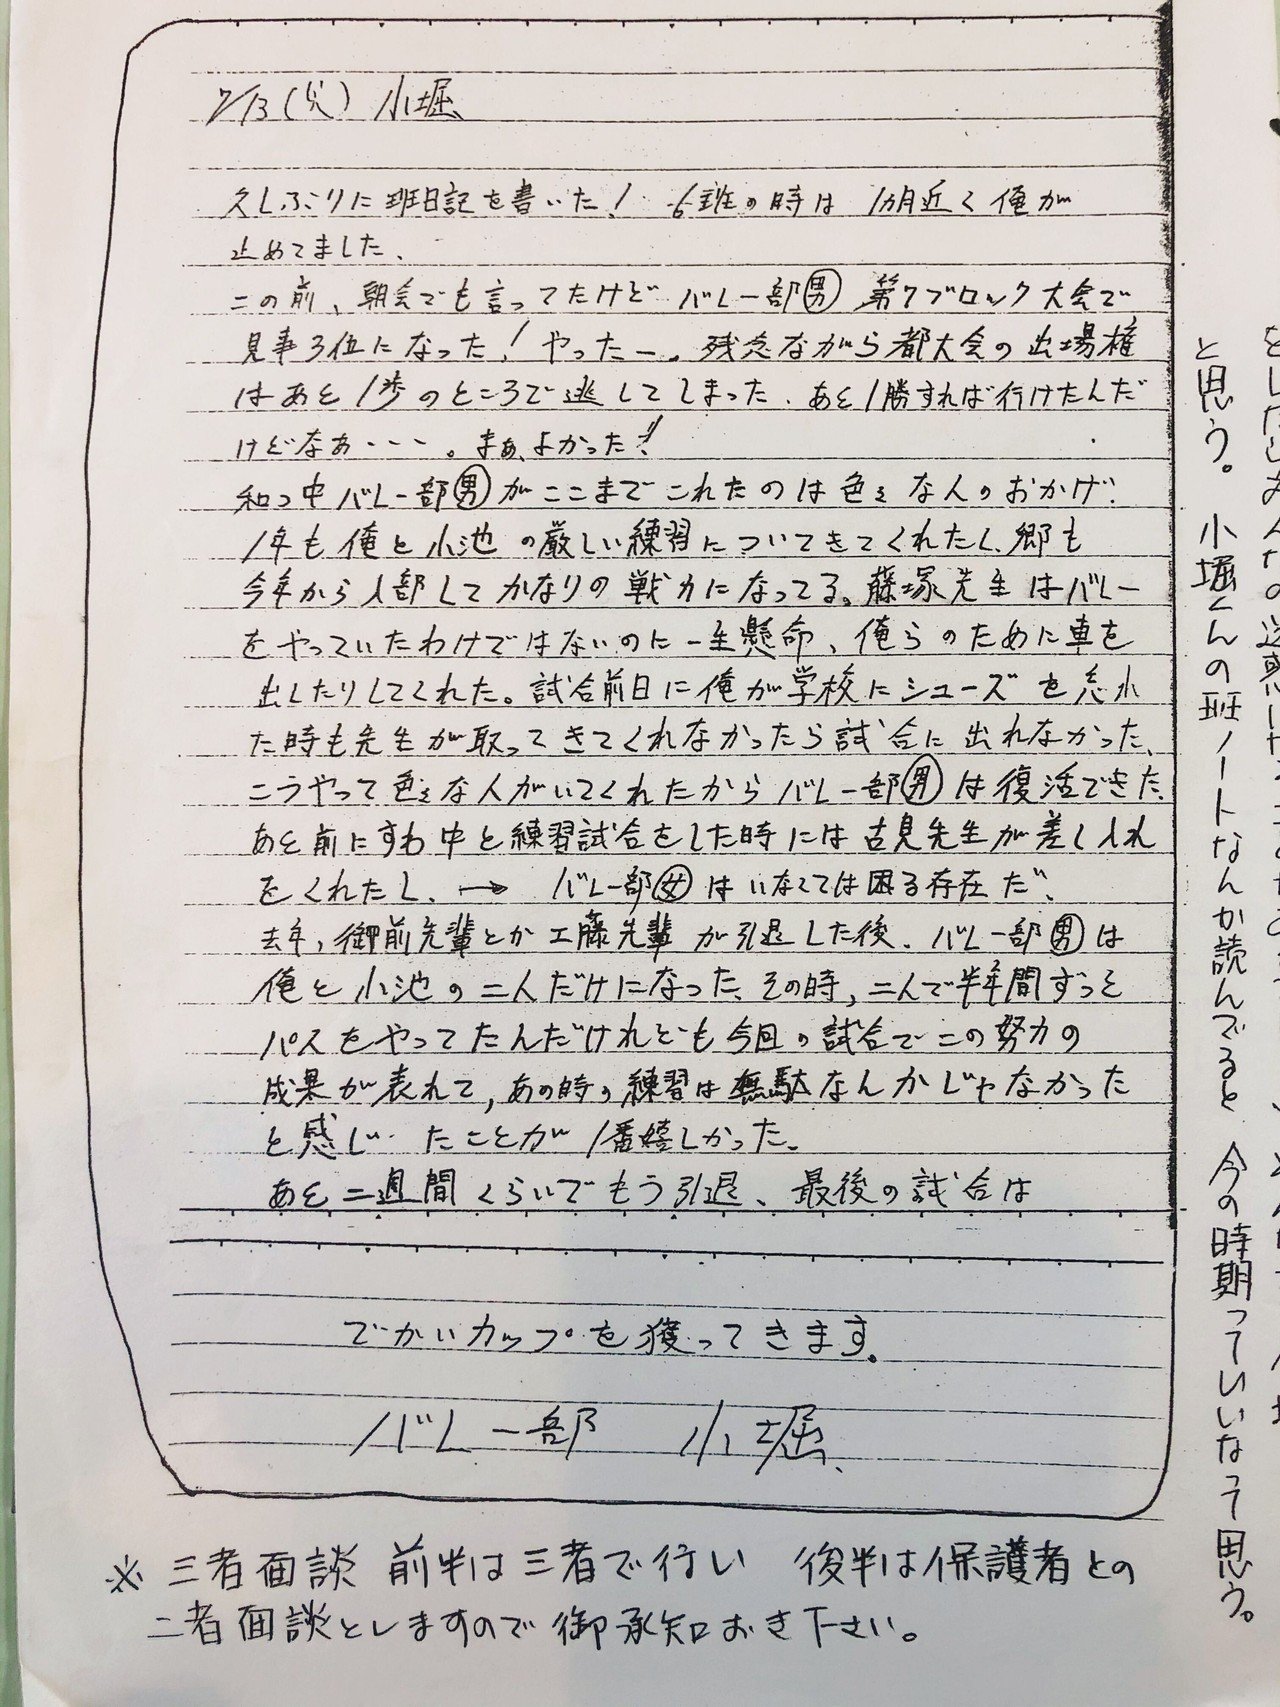 7/13(火) 小堀
久しぶりに班日記を書いた! 6班の時は 1ヵ月近く俺が
止めてました、
この前、朝会でも言ってたけど バレー部㊚ 第7ブロック大会で
見事3位になった! やったー。残念ながら都大会の出場権
はあと1歩のところで逃してしまった、あと1勝すれば行けたんだ
けどなぁ・・・。まぁ、よかった!!
和っ中バレー部㊚がここまでこれたのは色々な人のおかげ、
1年も俺と小池の厳しい練習についてきてくれたし、郷も
今年から入部してかなりの戦力になってる。藤塚先生はバレー
をやっていたわけではないのに一生懸命、俺らのために車を
出したりしてくれた。試合前日に俺が学校にシューズを忘れ
た時も先生が取ってきてくれなかったら試合に出れなかった、
こうやって色々な人がいてくれたからバレー部㊚は復活できた、
あと前にすわ中と練習試合をした時には古見先生が差し入れ
をくれたし、→ バレー部㊛はいなくては困る存在だ、
去年、御前先輩とか工藤先輩が引退した後、バレー部㊚は
俺と小池の二人だけになった、その時、二人で半年間ずっと
パスをやってたんだけれども今回の試合でこの努力の
成果が表れて、あの時の練習は無駄なんかじゃなかった
と感じたことが1番嬉しかった。
あと二週間くらいでもう引退、最後の試合は
でかいカップを獲ってきます。
バレー部 小堀、
※ 三者面談 前半は三者で行い 後半は保護者との
二者面談としますので御承知おき下さい。
と思う。小堀くんの班ノートなんか読んでると 今の時期っていいなって思う。